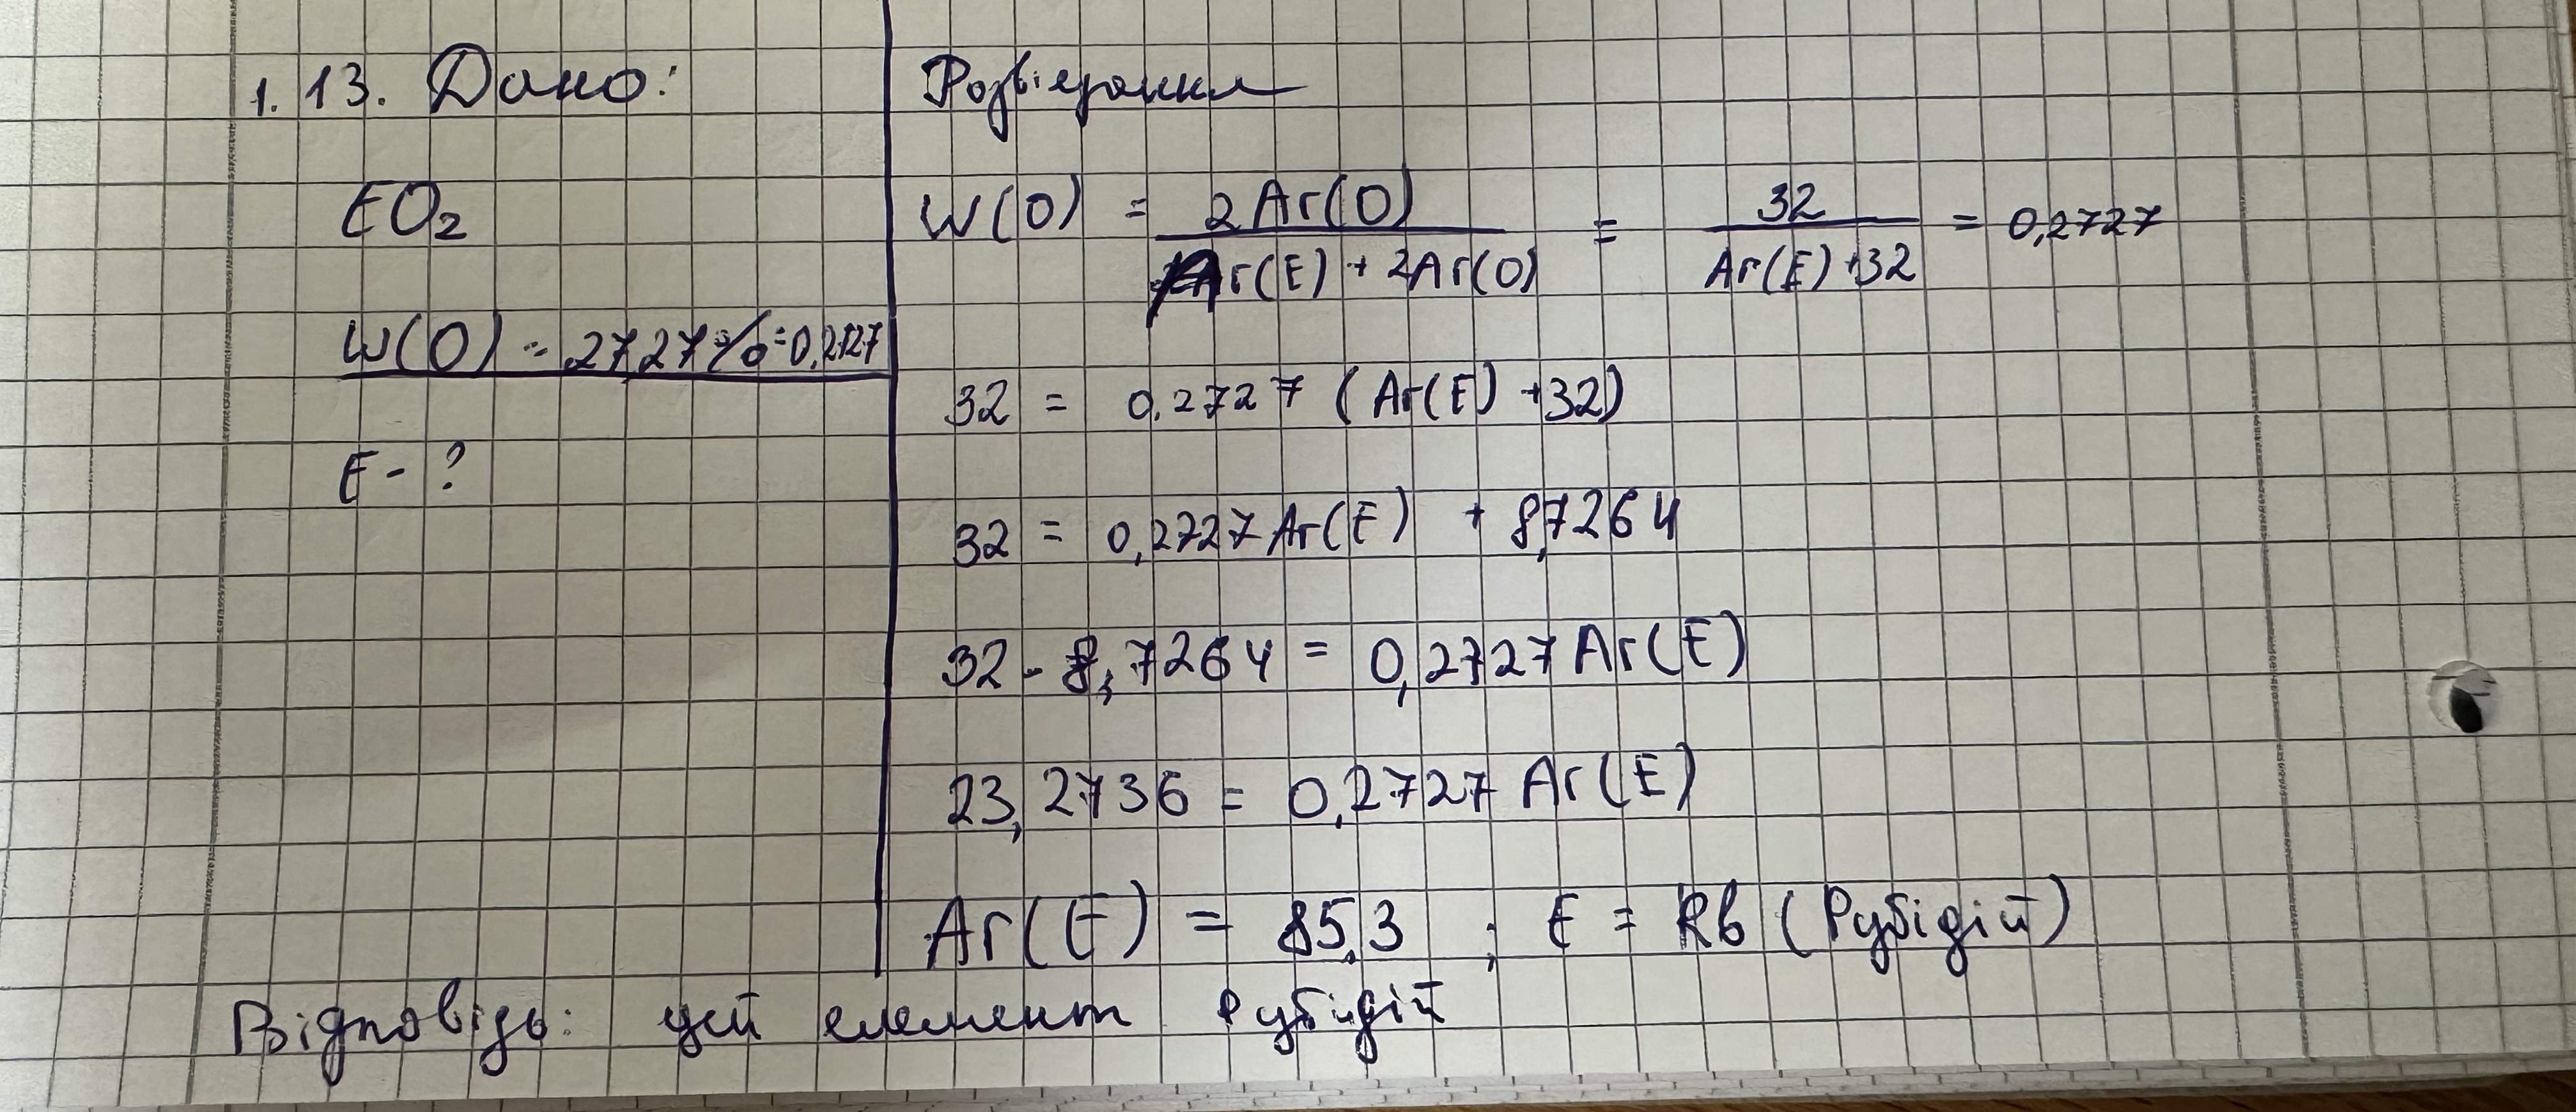 1.13. Дано:
EO₂
W(O) = 27,27% = 0,2727
E - ?
Розв'язання
W(O) = 2Ar(O) / Ar(E) + 2Ar(O) = 32 / Ar(E) + 32 = 0,2727
32 = 0,2727 (Ar(E) + 32)
32 = 0,2727 Ar(E) + 8,7264
32 - 8,7264 = 0,2727 Ar(E)
23,2736 = 0,2727 Ar(E)
Ar(E) = 85,3 ; E = Rb (Рубідій)
Відповідь: цей елемент Рубідій